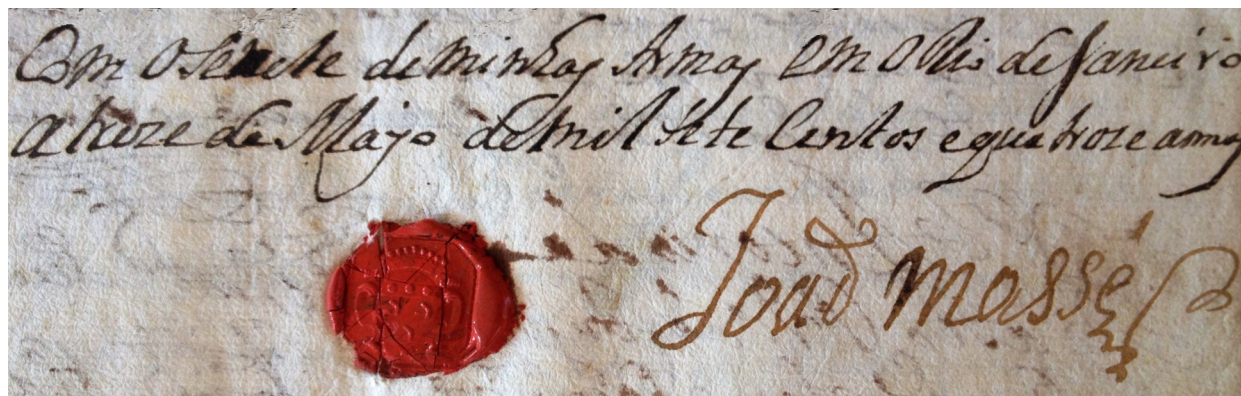 Com o Senete de minhas Armas em o Rio de Janeiro
a treze de Mayo de mil sete Centos e quatroze annos
Joaõ Massé